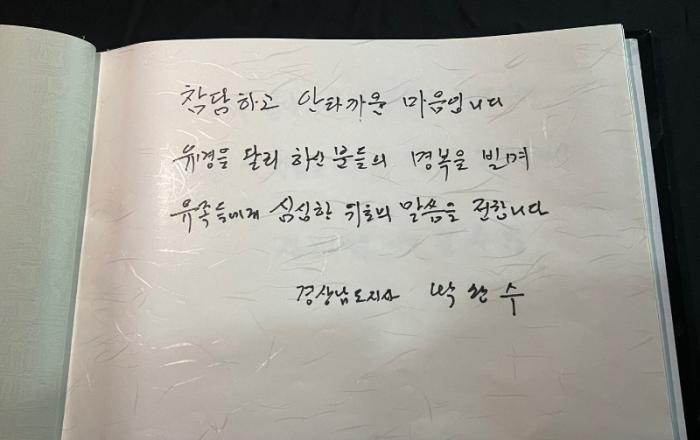 참담하고 안타까운 마음입니다
유경을 달리 하신 분들의 명복을 빌며
유족들에게 심심한 위로의 말씀을 전합니다
경상남도지사 박완수